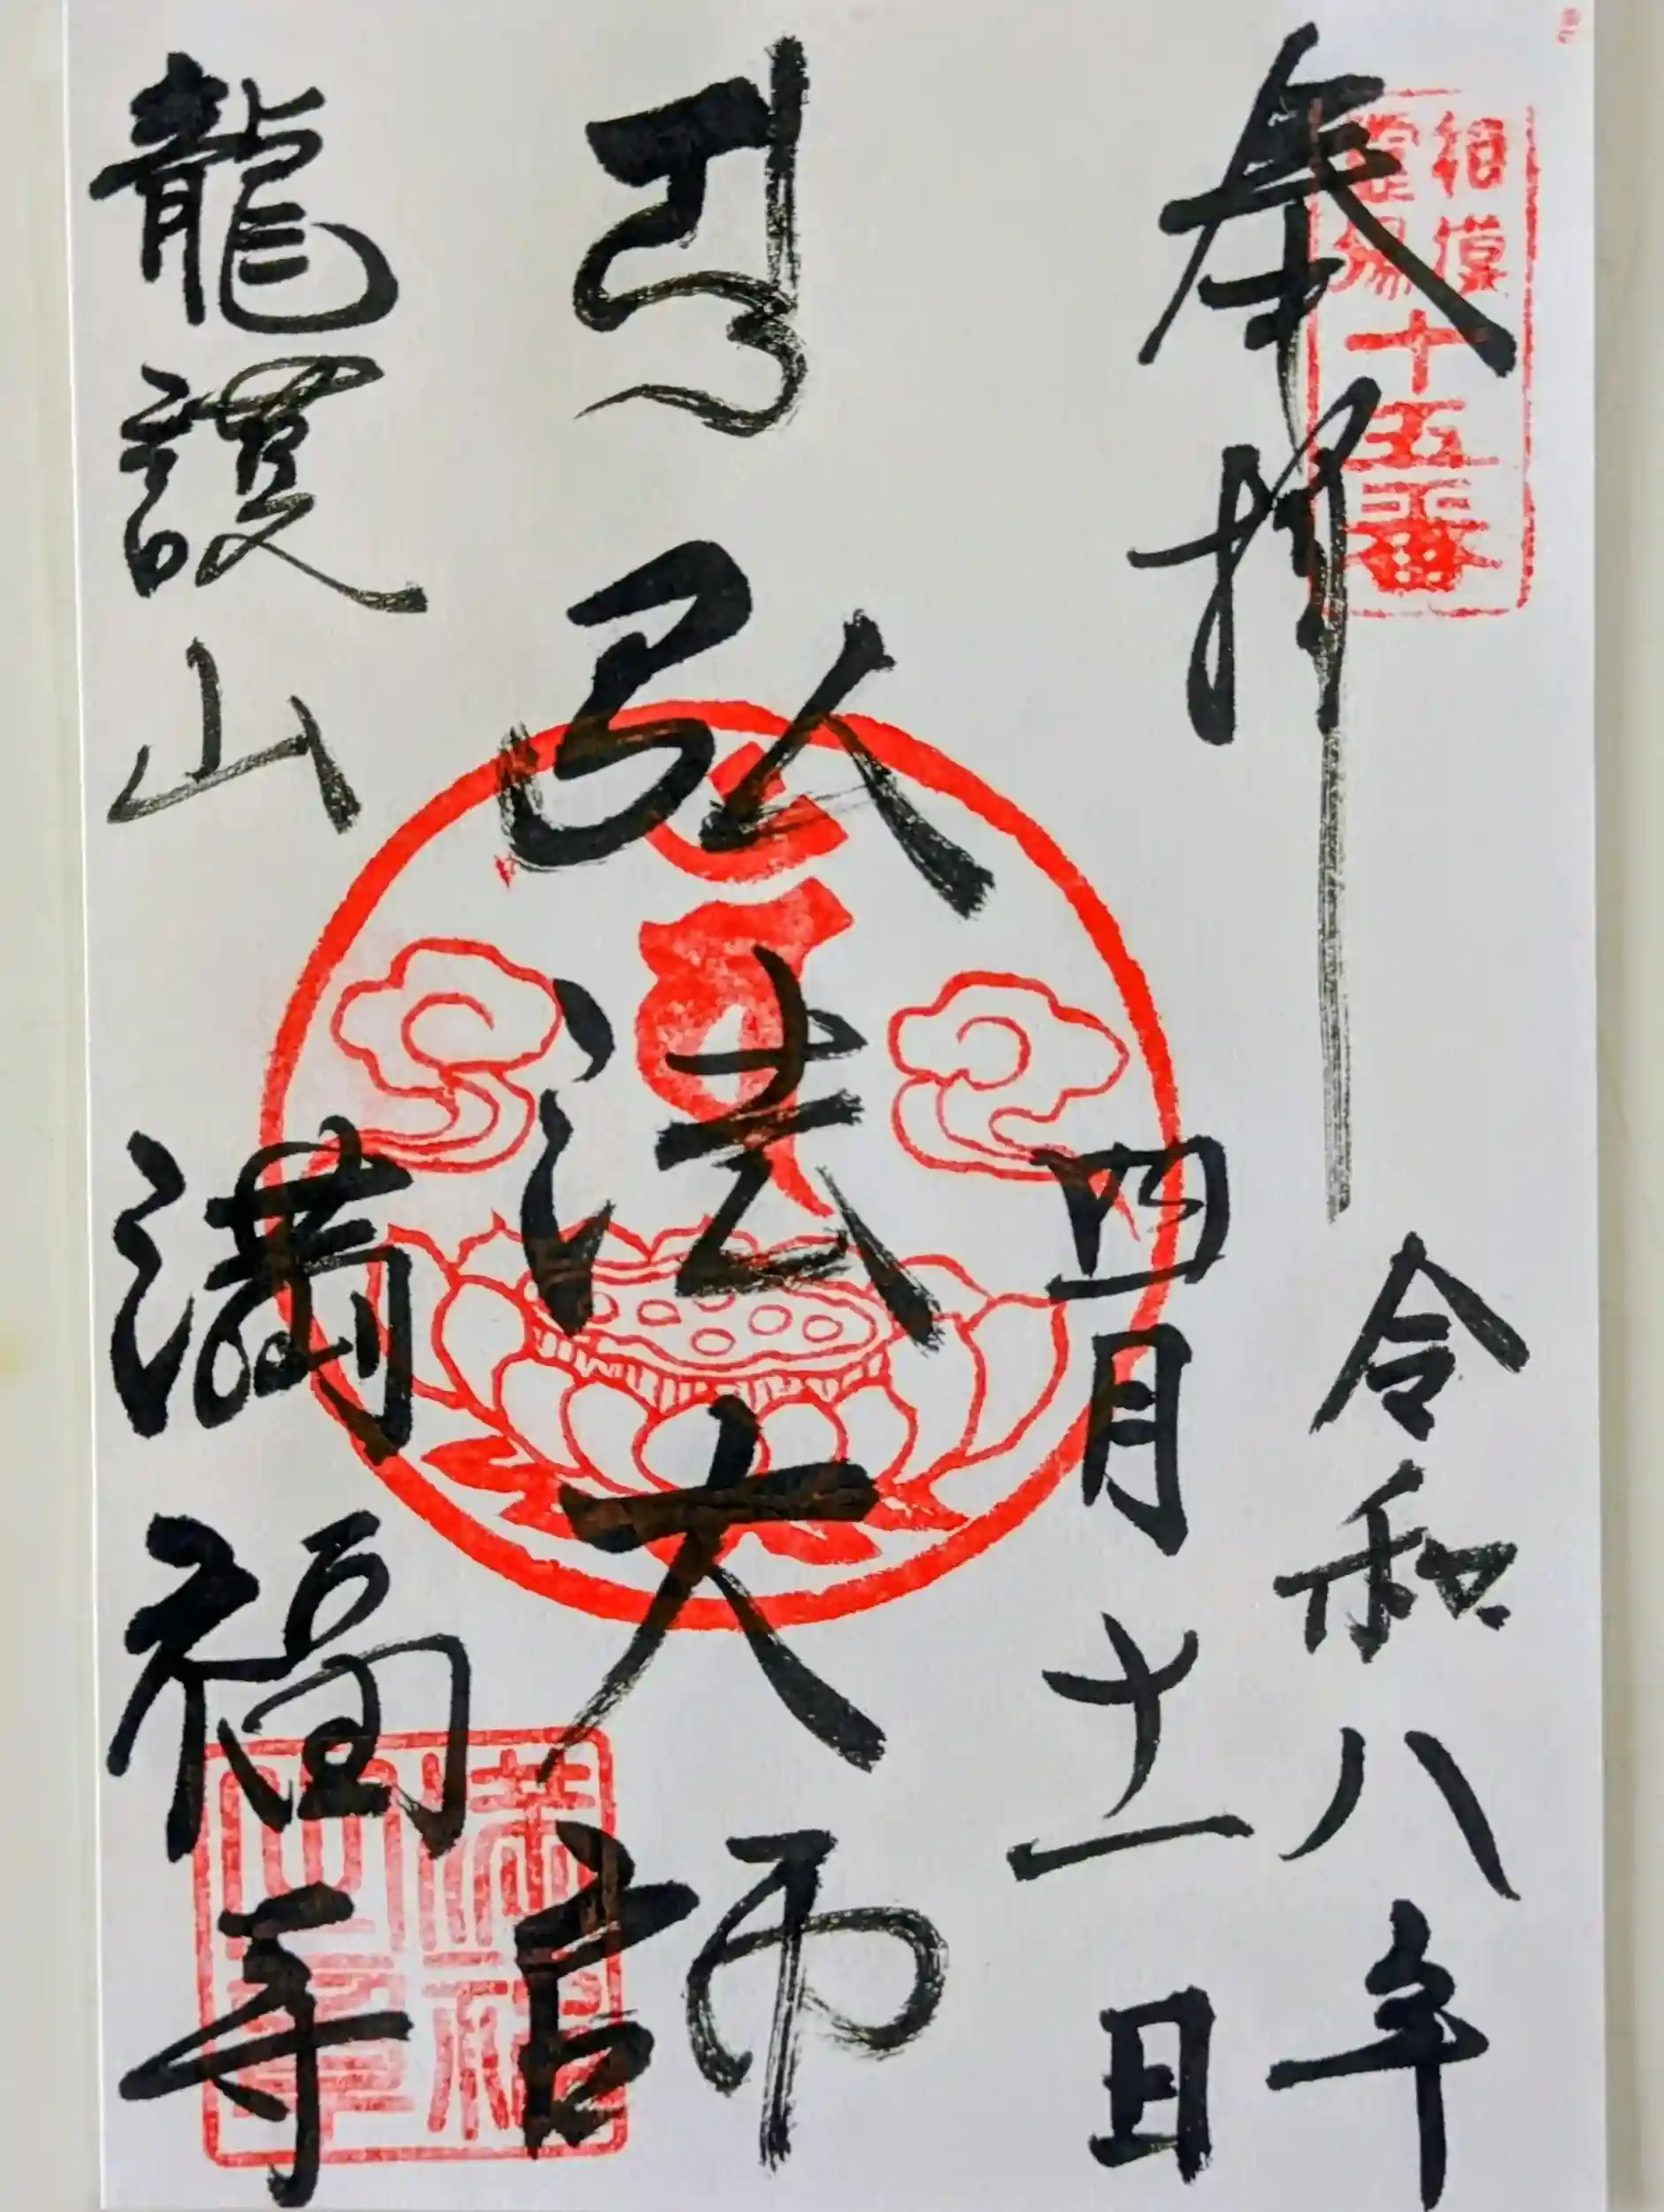 奉拝
相模
霊場
十五番
令和八年
四月十一日
弘法大師
龍護山
満福寺
満福
之寺